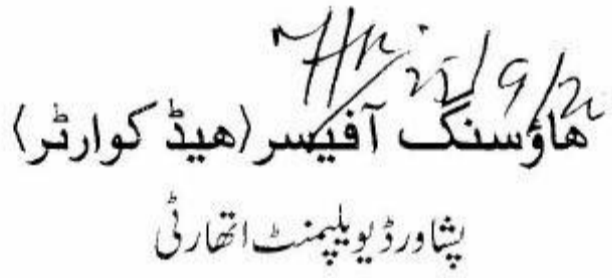 ھاؤسنگ آفیسر (ھیڈ کوارٹر)
پشاور ڈیویلپمنٹ اتھارٹی